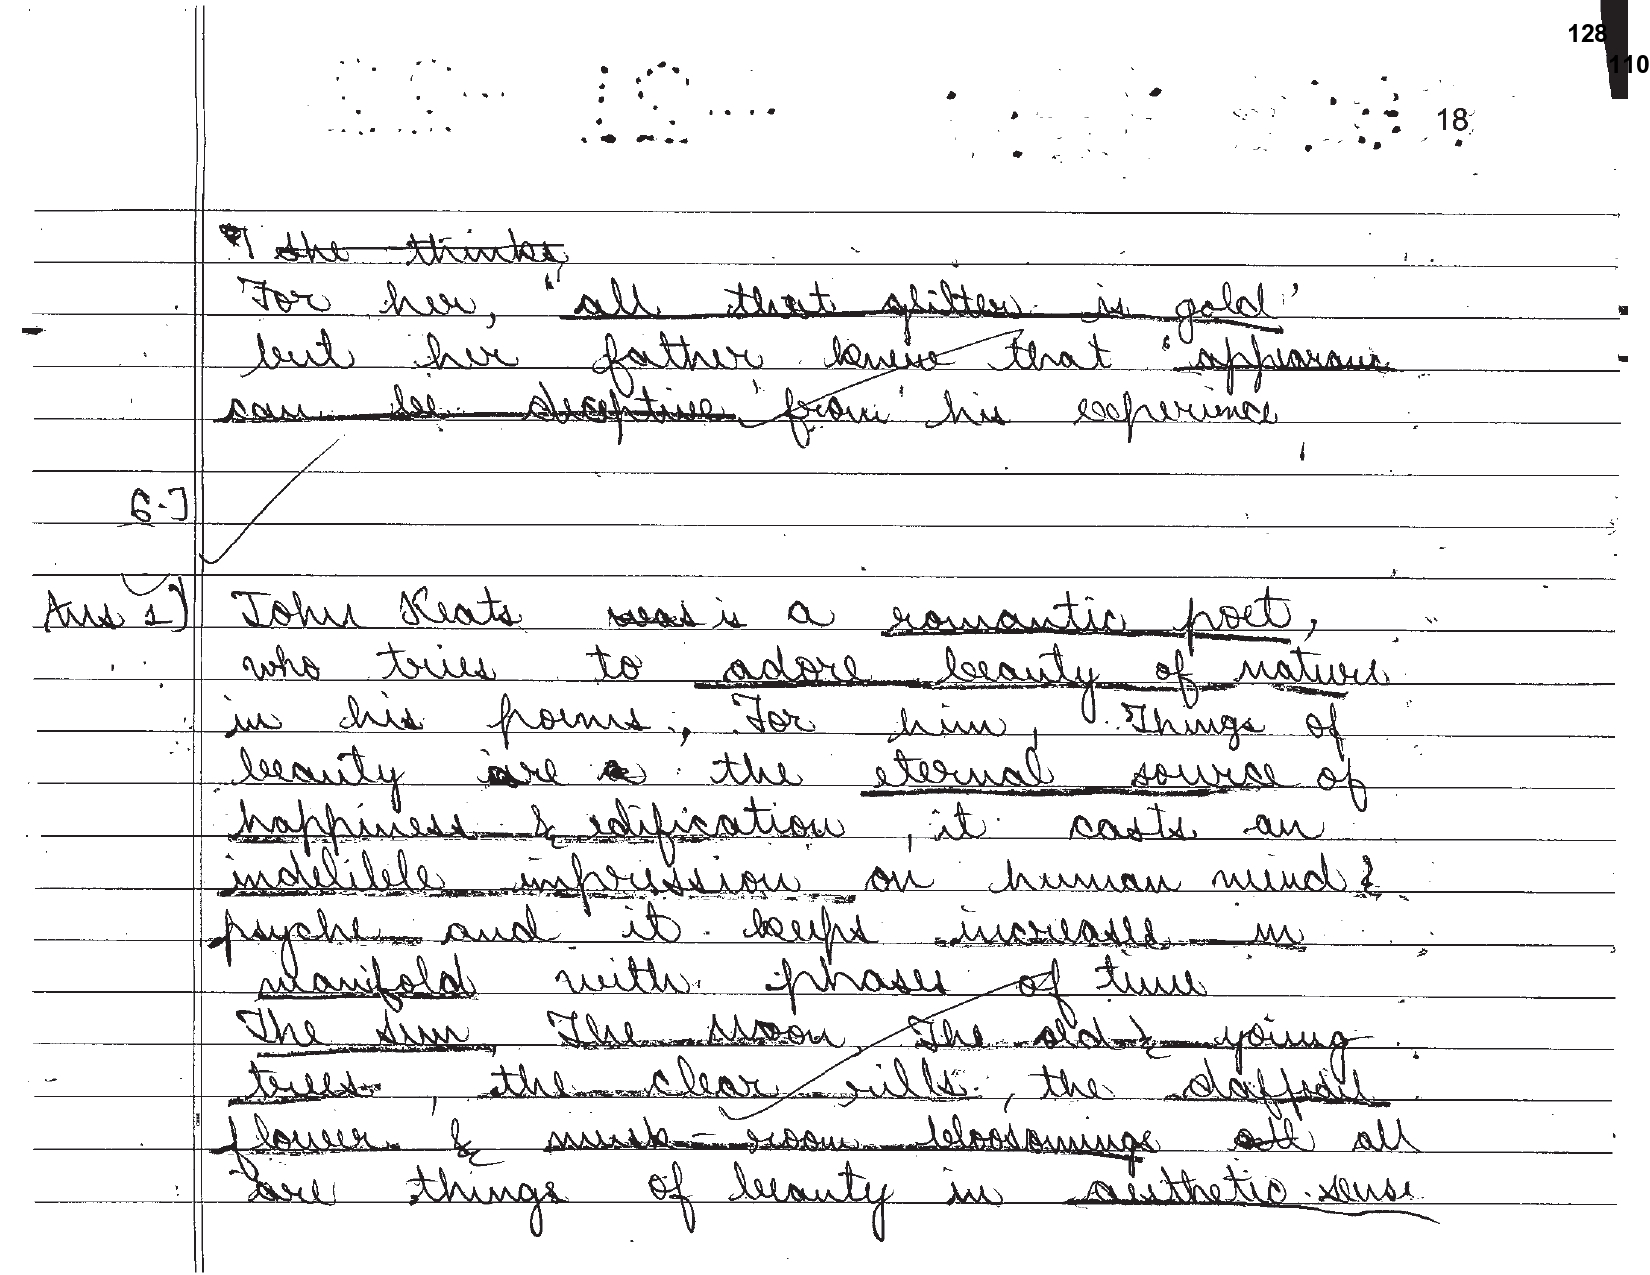 128
110
18
she thinks
For her, "all that glitter is gold'
but her father knew that 'appearance
can be deceptive' from his experience
6.]
Ans 1] John Keats was is a romantic poet,
who tries to adore beauty of nature
in his poems, For him, Things of
beauty are the eternal source of
happiness & edification, it casts an
indelible impression on human mind &
psyche and it keeps increases in
manifold with phases of time
The sun, The Moon, The old & young
trees, the clear rills, the daffodil
flower & musk-room bloosomings all
are things of beauty in aesthetic sense